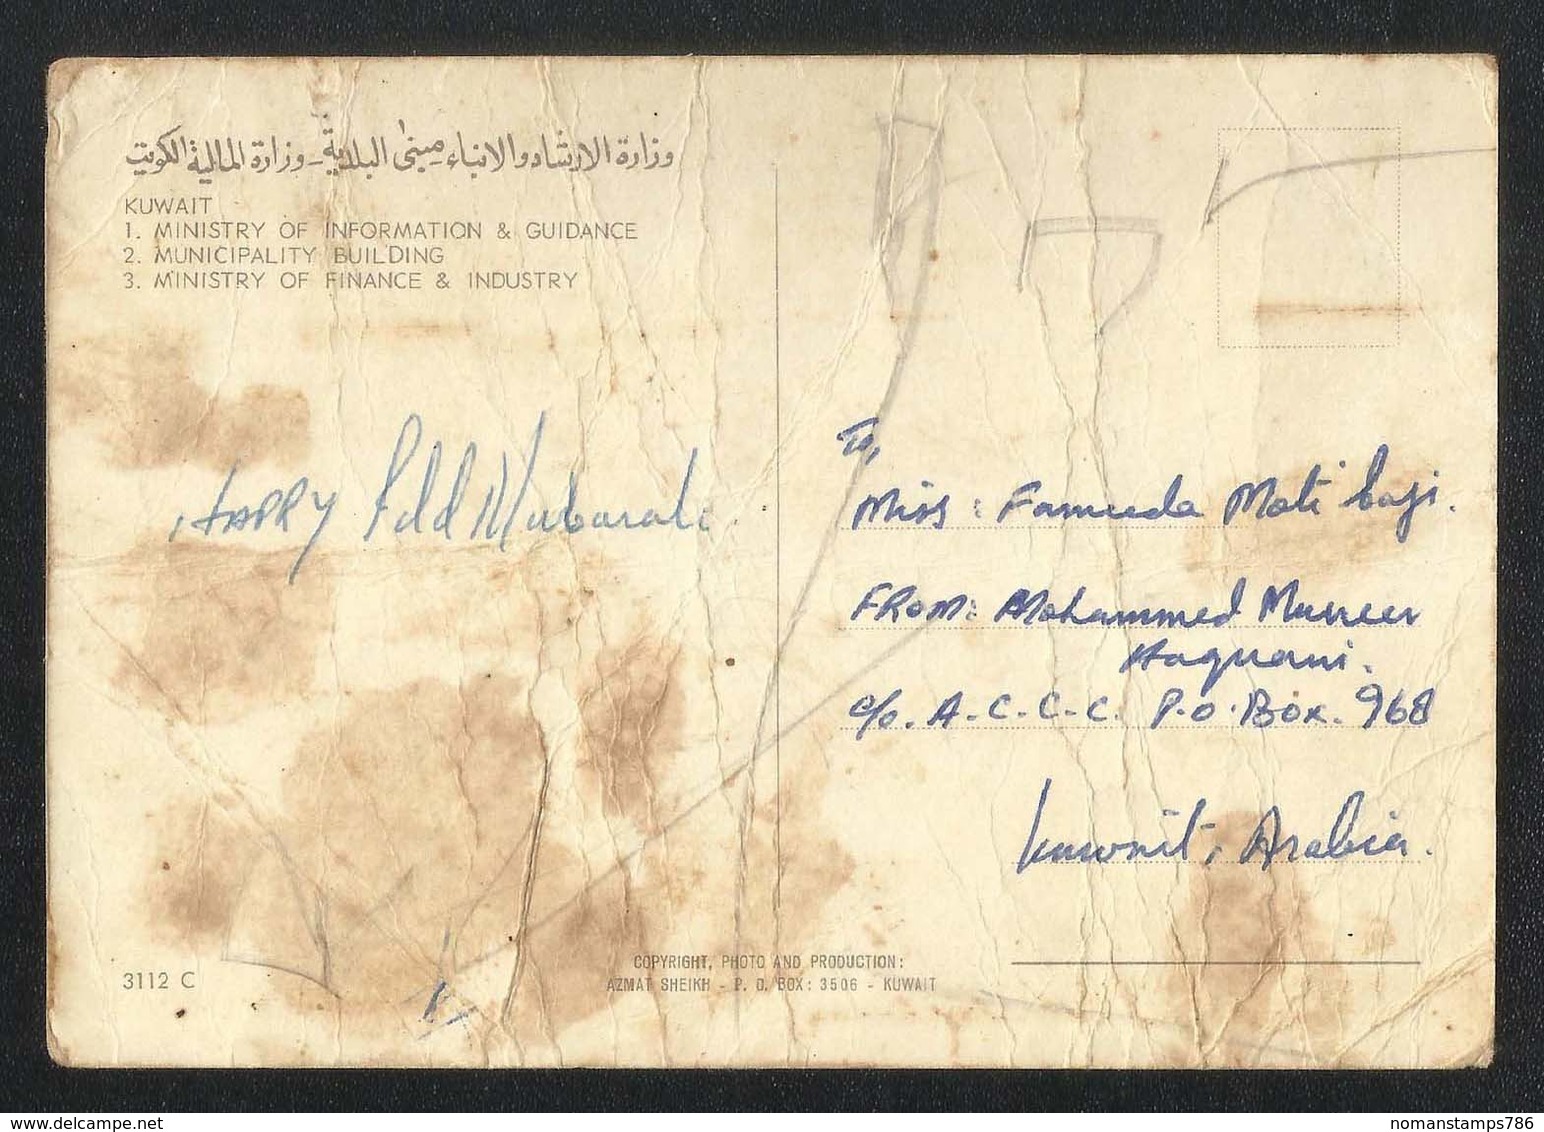 وزارة الارشاد والانباء - مبنى البلدية - وزارة المالية الكويت
KUWAIT
1. MINISTRY OF INFORMATION & GUIDANCE
2. MUNICIPALITY BUILDING
3. MINISTRY OF FINANCE & INDUSTRY
HAPPY Idd Mubarak
To,
Miss: Fameeda Moti baji.
FROM: Mohammed Muneer
c/o. A-C-C-C. P.O. Box. 968
Kuwait, Arabia.
3112 C
COPYRIGHT, PHOTO AND PRODUCTION:
AZMAT SHEIKH - P. O. BOX: 3506 - KUWAIT
delcampe.net
nomanstamps786